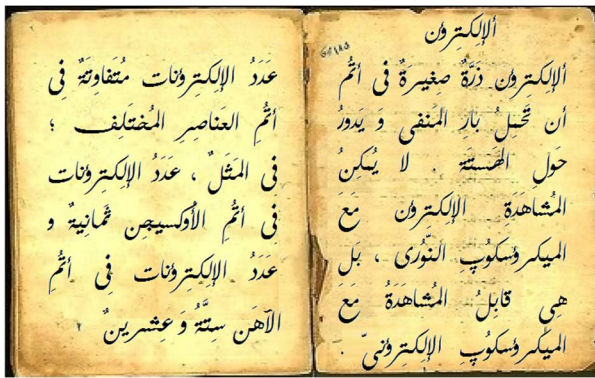 ألإلکتِرؤن
ألإلکتِرؤن ذَرَّةٌ صِغیرَةٌ فی أتُم
أن تَحمِلُ بارَ المَنفی وَ یَدورُ
حَولِ الهَستَة . لا یُمکِنُ
المُشاهَدَة الإلکتِرؤن مَعَ
المیکرؤسکؤپِ النّؤری ، بَل
هِیَ قابِلُ المُشاهَدَةُ مَعَ
المیکرؤسکؤپِ الإلکتِرؤنیّ .
عَدَدُ الإلکتِرؤنات مُتَفاوِتَةٌ فِی
أتُمُ العَناصِرِ المُختَلِف ؛
فِی المَثَلٌ ، عَدَدُ الإلکتِرؤنات
فِی أتُمِ الأؤکسیجِن ثَمانِیةٌ و
عَدَدُ الإلکتِرؤنات فِی أتُمِ
الآهَن سِتَّةُ وَ عِشرینٌ